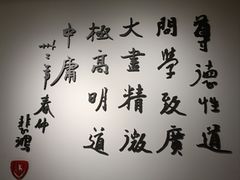 尊德性道
問學致廣
大盡精微
極高明道
中庸
年春仲
悲鴻
K